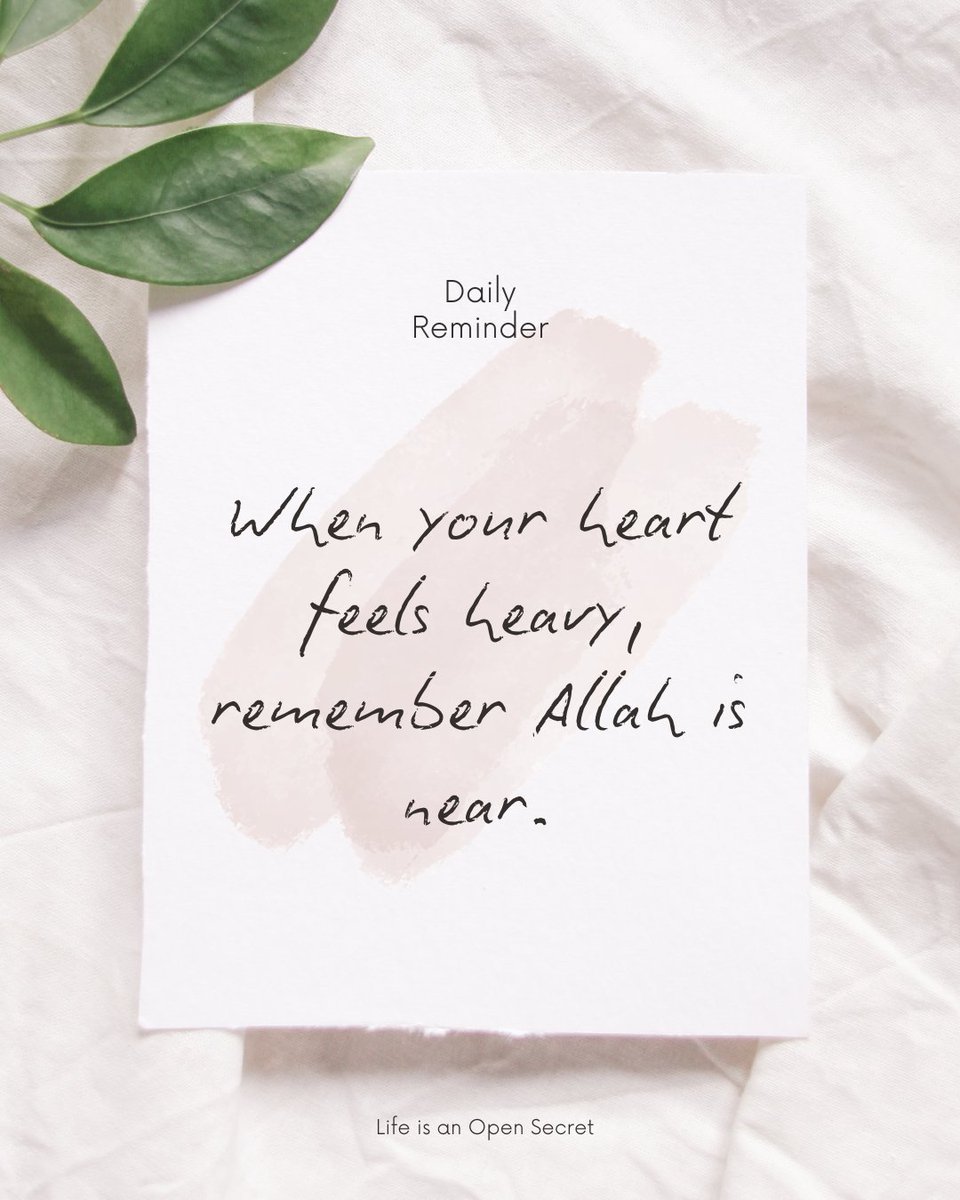 Daily
Reminder
When your heart
feels heavy,
remember Allah is
near.
Life is an Open Secret